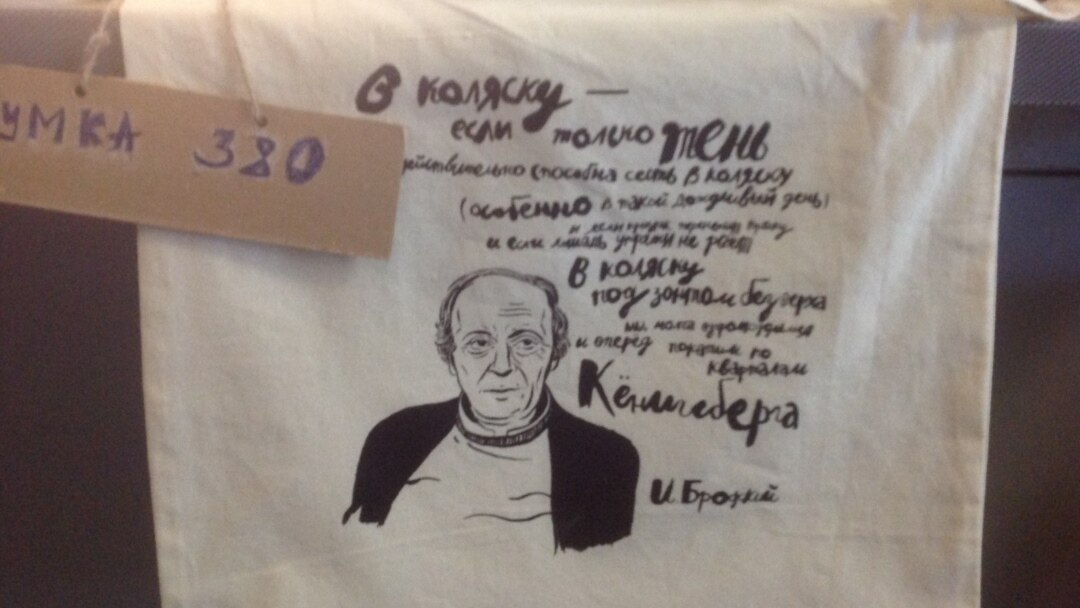 УМКА 380
В коляску —
если только тень
действительно способна сесть в коляску
(особенно в такой дождливый день)
и если
и если лошадь упряжи не
В коляску
под зонтом без верха
мы молча
и вперед покатим по
кварталам
Кёнигсберга
И. Бродский